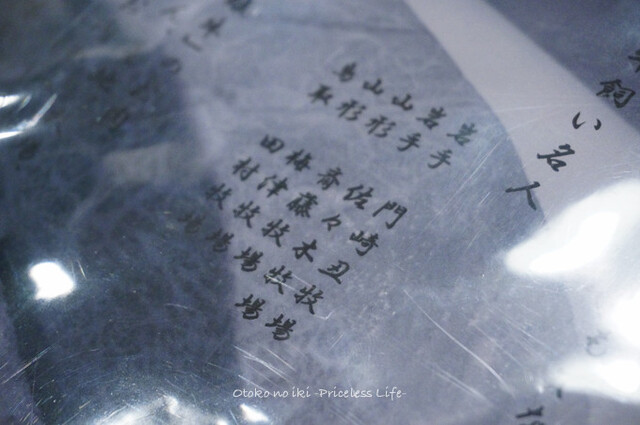 牛飼い名人
岩手
岩手
山形
山形
鳥取
門崎丑牧場
佐々木牧場
斎藤牧場
梅津牧場
田村牧場
Otoko no iki -Priceless Life-